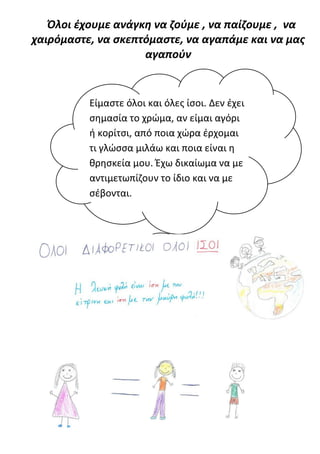 Όλοι έχουμε ανάγκη να ζούμε , να παίζουμε , να
χαιρόμαστε, να σκεπτόμαστε, να αγαπάμε και να μας
αγαπούν
Είμαστε όλοι και όλες ίσοι. Δεν έχει
σημασία το χρώμα, αν είμαι αγόρι
ή κορίτσι, από ποια χώρα έρχομαι
τι γλώσσα μιλάω και ποια είναι η
θρησκεία μου. Έχω δικαίωμα να με
αντιμετωπίζουν το ίδιο και να με
σέβονται.
ΟΛΟΙ ΔΙΑΦΟΡΕΤΙΚΟΙ ΟΛΟΙ ΙΣΟΙ
Η λευκή φυλή είναι ίση με την
κίτρινη και ίση με την μαύρη φυλή!!!